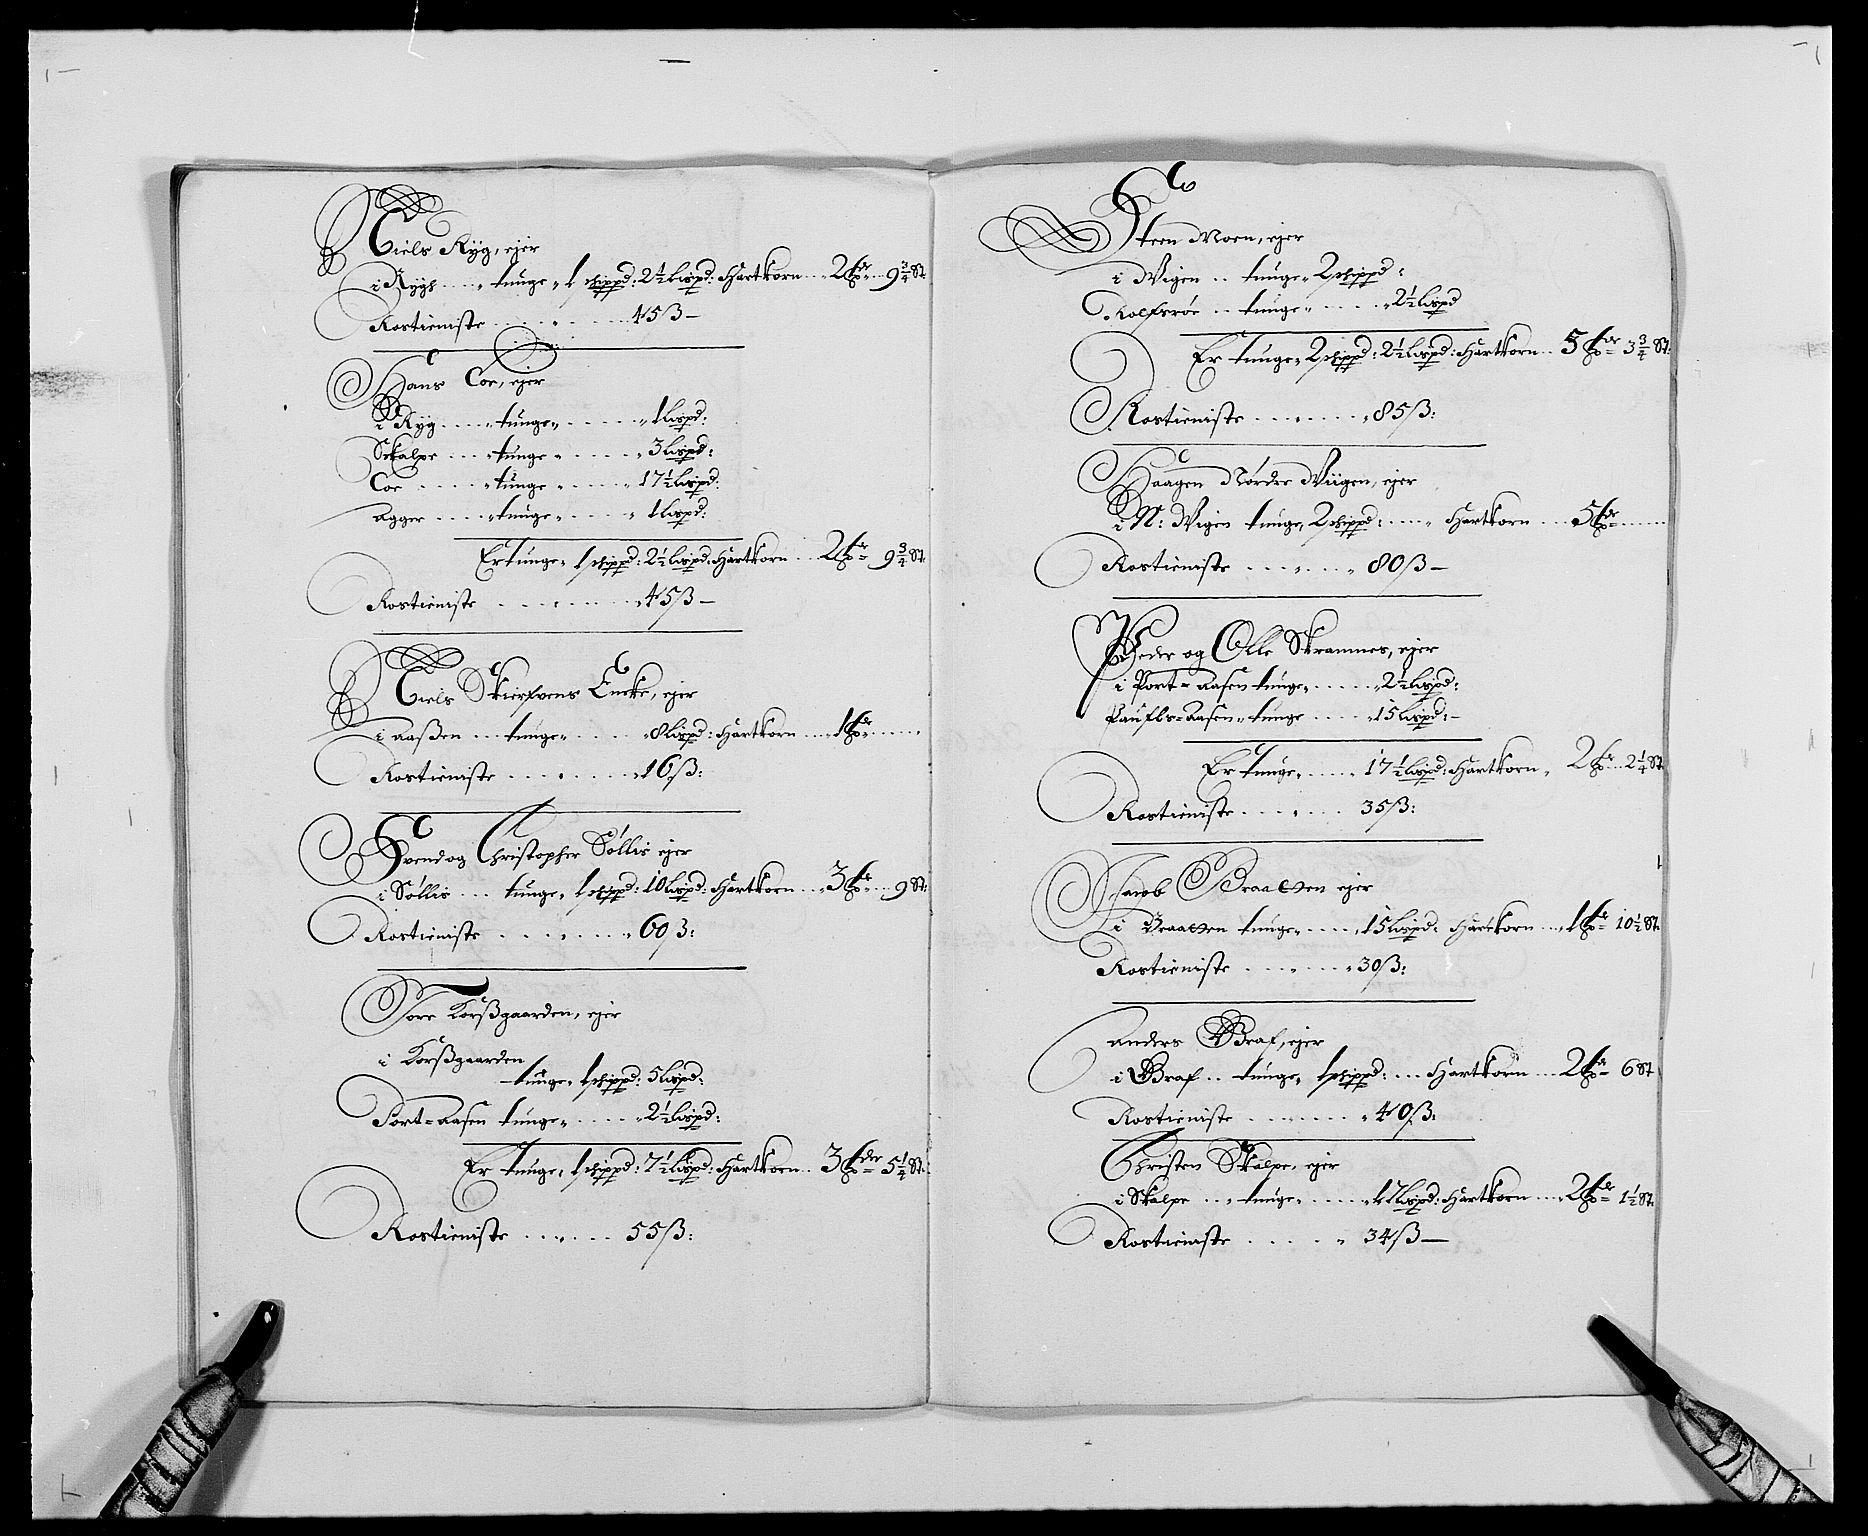 Niels Ryg, ejer
i Rygh .... tunge 1 schippd: 2½ Lispd: Hartkorn ... 2 tdr ... 9¾ St:
Rostieniste ........ 45 ß —
Hans Coe, ejer
i Ryg .... tunge ...... 1 Lispd:
Skalpe .... tunge ...... 3 Lispd:
Coe ..... tunge ...... 17½ Lispd:
Agger .... tunge ...... 1 Lispd:
Er tunge 1 schippd: 2½ Lispd: Hartkorn ... 2 tdr 9¾ St:
Rostieniste ........ 45 ß —
Niels Skierfvens Encke, ejer
i Aaßen ... tunge ...... 8 Lispd: Hartkorn .... 1 tdr ......
Rostieniste ........ 16 ß:
Svend og Christopher Söllis ejer
i Söllis .... tunge 1 schippd: 10 Lispd: Hartkorn ... 3 tdr ... 9 St:
Rostieniste ........ 60 ß:
Tore Korßgaarden, ejer
i Korßgaarden
tunge 1 schippd: 5 Lispd:
Port=Aasen tunge ...... 2½ Lispd:
Er tunge 1 schippd: 7½ Lispd: Hartkorn .. 3 tdr 5¼ St:
Rostieniste ....... 55 ß:
Steen Moen, ejer
i Wigen .. tunge 2 schippd:
Rolfsröe .. tunge ...... 2½ Lispd
Er tunge 2 schippd: 2½ Lispd: Hartkorn .. 5 tdr 3¾ St:
Rostieniste ....... 85 ß:
Haagen Nördre Wiigen, ejer
i N: Wigen tunge 2 schippd: .... Hartkorn .... 5 tdr ......
Rostieniste ....... 80 ß —
Peder og Olle Skrammes, ejer
i Port=Aasen tunge ...... 2½ Lispd:
Paufls=Aasen tunge ..... 15 Lispd: —
Er tunge ..... 17½ Lispd: Hartkorn 2 tdr .. 2¼ St
Rostieniste ...... 35 ß:
Jacob Braatten ejer
i Braatten tunge ..... 15 Lispd: Hartkorn ... 1 tdr 10½ St.
Rostieniste ....... 30 ß:
Anders Graf, ejer
i Graf .. tunge 1 schippd: ... Hartkorn ... 2 tdr 6 St
Rostieniste ........ 40 ß:
Christen Skalpe, ejer
i Skalpe .... tunge ...... 17 Lispd: Hartkorn .... 2 tdr 1½ St.
Rostieniste ...... 34 ß —